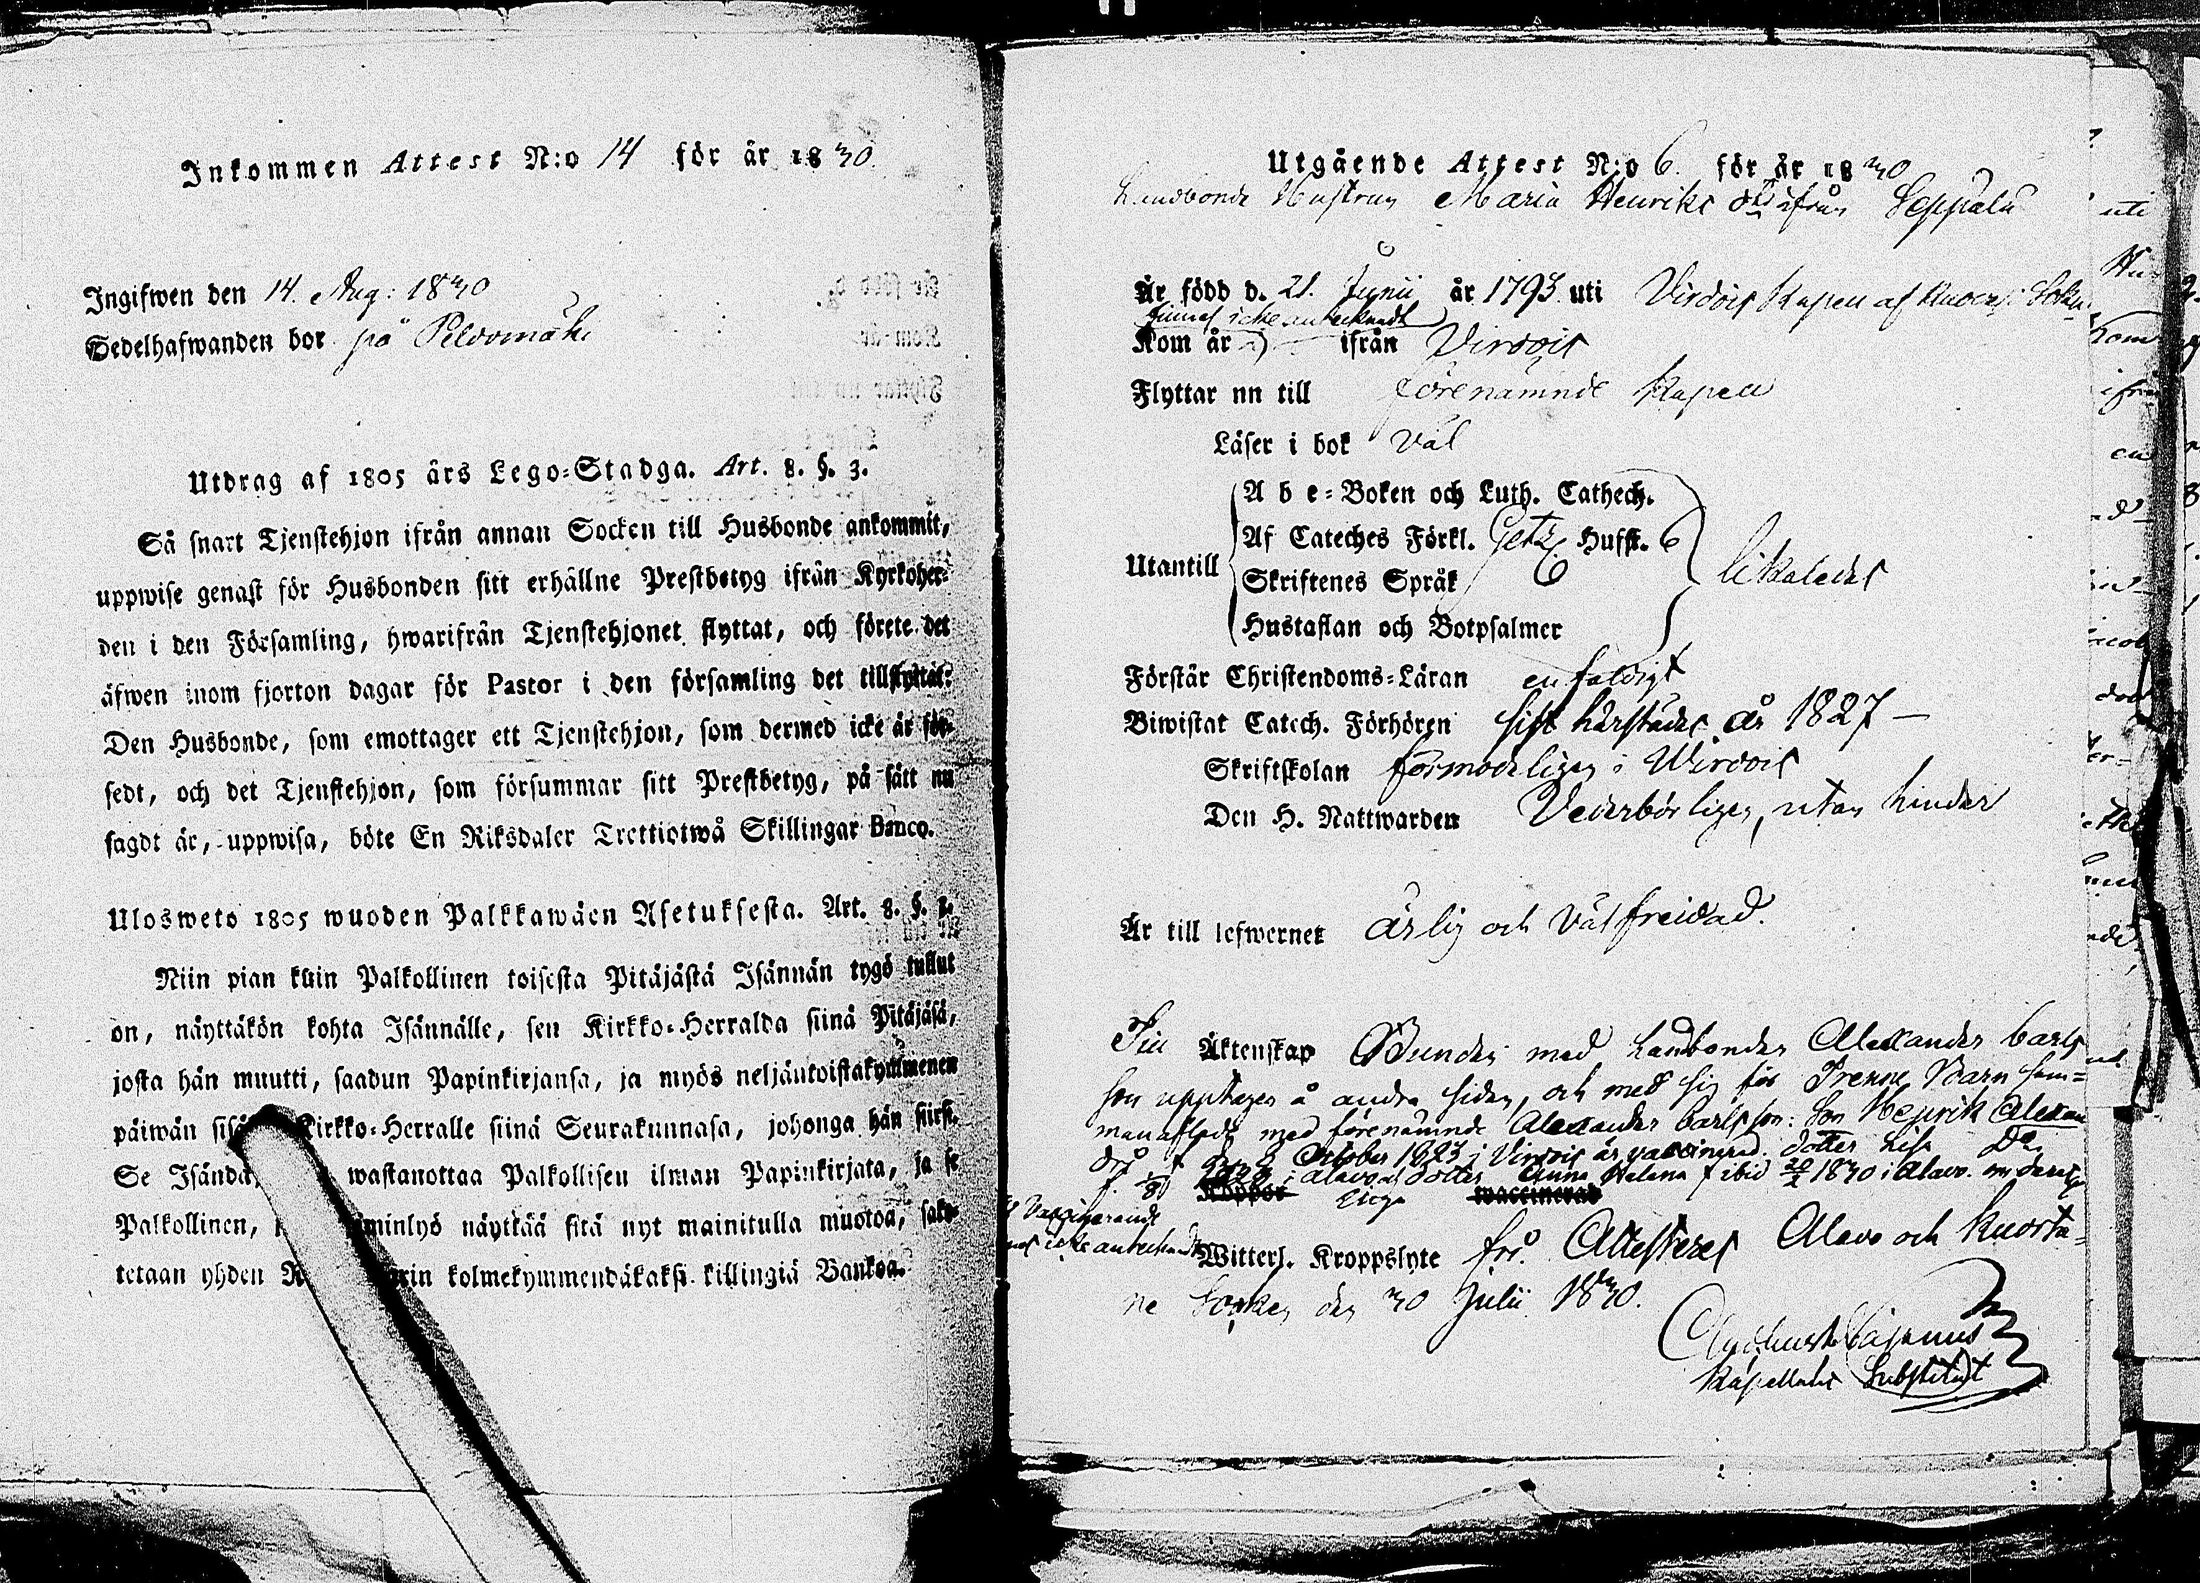 Inkommen Attest N:o 14 för år 1830.
Ingifwen den 14. Aug: 1830
Sedelhafwanden bor på Peldomäki
Utdrag af 1805 års Lego-Stadga. Art. 8. §. 3.
Så snart Tjenstehjon ifrån annan Socken till Husbonde ankommit,
uppwise genast för Husbonden sitt erhållne Prestbetyg ifrån Kyrkoher-
den i den Församling, hwarifrån Tjenstehjonet flyttat, och förete det
äfwen inom fjorton dagar för Pastor i den församling det tillflyttat:
Den Husbonde, som emottager ett Tjenstehjon, som dermed icke är för-
sedt, och det Tjenstehjon, som försummar sitt Prestbetyg, på sätt nu
sagdt är, uppwisa, böte En Riksdaler Trettiotwå Skillingar Banco.
Ulosweto 1805 wuoden Palkkawäen Asetuksesta. Art. 8. §. 3.
Niin pian kuin Palkollinen toisesta Pitäjästä Isännän tygö tullut
on, näyttäkön kohta Isännälle, sen Kirkko-Herralda siinä Pitäjäsä,
josta hän muutti, saadun Papinkirjansa, ja myös neljäntoistakymmenen
päiwän Kirkko-Herralle siinä Seurakunnasa, johonga hän siirsi.
Se Isändä, wastanottaa Palkollisen ilman Papinkirjata, ja se
Palkollinen, näyttää sitä nyt mainitulla muotoa, sako-
tetaan yhden kolmekymmendäkaksi killingiä Bankoa.
Utgående Attest N:o 6. för år 1830
Landbonde Hustrun Maria Henriks dtr ifrån Seppälä
Är född d. 21. Junii år 1793 uti Virdois Kapell af Ruovesi Sokn
finnes icke antecknadt
Kom år ifrån Virdois
Flyttar nu till förenämnde Kapell
Läser i bok väl
Utantill
A b c-Boken och Luth. Cathech.
Af Cateches Förkl. Hufst. 6
Skriftenes Språk
Hustaflan och Botpsalmer
likaledes
Förstår Christendoms-Läran enfaldigt
Biwistat Catech. Förhören sist härstädes år 1827 —
Skriftskolan förmodeligen i Wirdois
Den H. Nattwarden Vederbörligen, utan hinder
Är till lefwernet ärlig och välfrejdad.
Till Äktenskap Bunden med Landbonden Alexander Carls
son upptagen å andra sidan, och med sig för Trenne Barn sam-
manaflade med förenämnde Alexander Carlsson: Son Henrik Alexan
October 1823 i Virdois är vaccinerad. dotter Lisa
i Alavo dotter Anna Helena f ibid 1830 i Alavo.
Koppor Ega waccinerad
icke antecknadt
Witterl. Kroppslyte fri. Attesteres Alavo och Kuorta-
ne Socken den 30 Julii 1830.
Kapellans Substitut